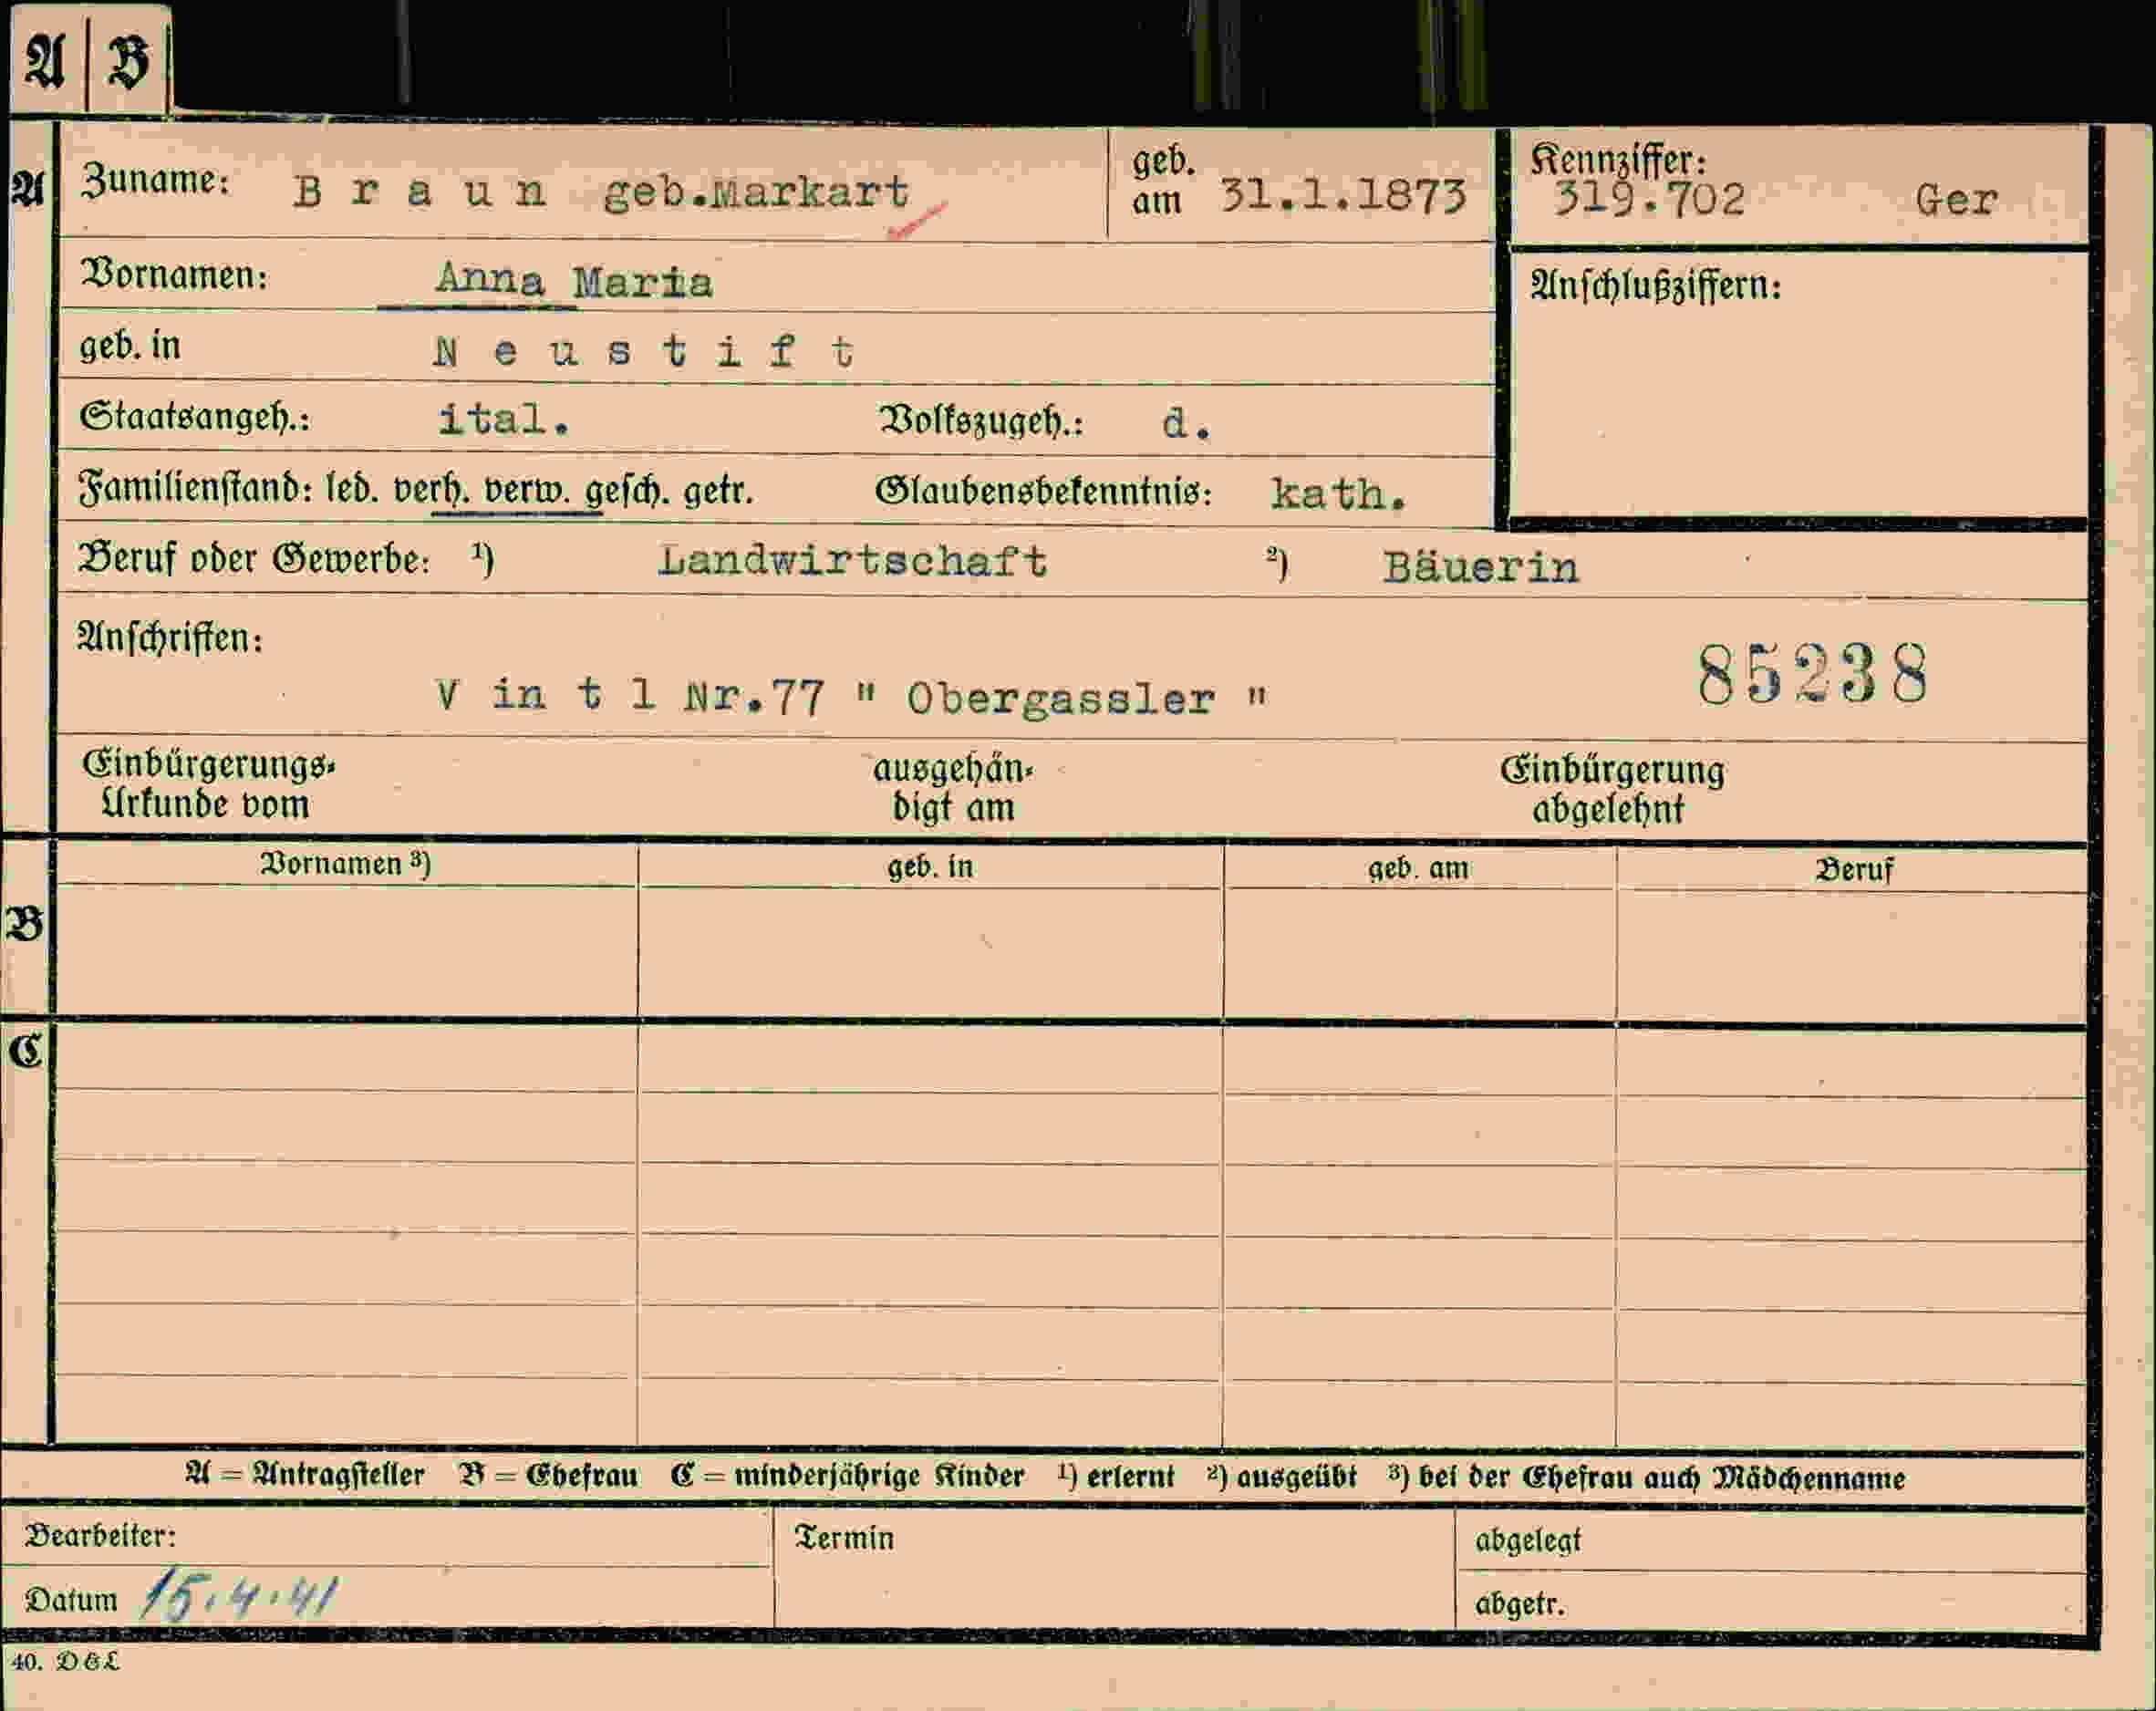 A B
A Zuname: B r a u n geb.Markart geb. am 31.1.1873 Kennziffer: 319.702 Ger
Vornamen: Anna Maria Anschlußziffern:
geb. in N e u s t i f t
Staatsangeh.: ital. Volkszugeh.: d.
Familienstand: led. verh. verw. gesch. getr. Glaubensbekenntnis: kath.
Beruf oder Gewerbe: ¹) Landwirtschaft ²) Bäuerin
Anschriften: 85238
V in t l Nr.77 " Obergassler "
Einbürgerungs- ausgehän- Einbürgerung
Urkunde vom digt am abgelehnt
Vornamen ³) geb. in geb. am Beruf
B
C
A = Antragsteller B = Ehefrau C = minderjährige Kinder ¹) erlernt ²) ausgeübt ³) bei der Ehefrau auch Mädchenname
Bearbeiter: Termin abgelegt
Datum 15.4.41 abgetr.
40. DGL